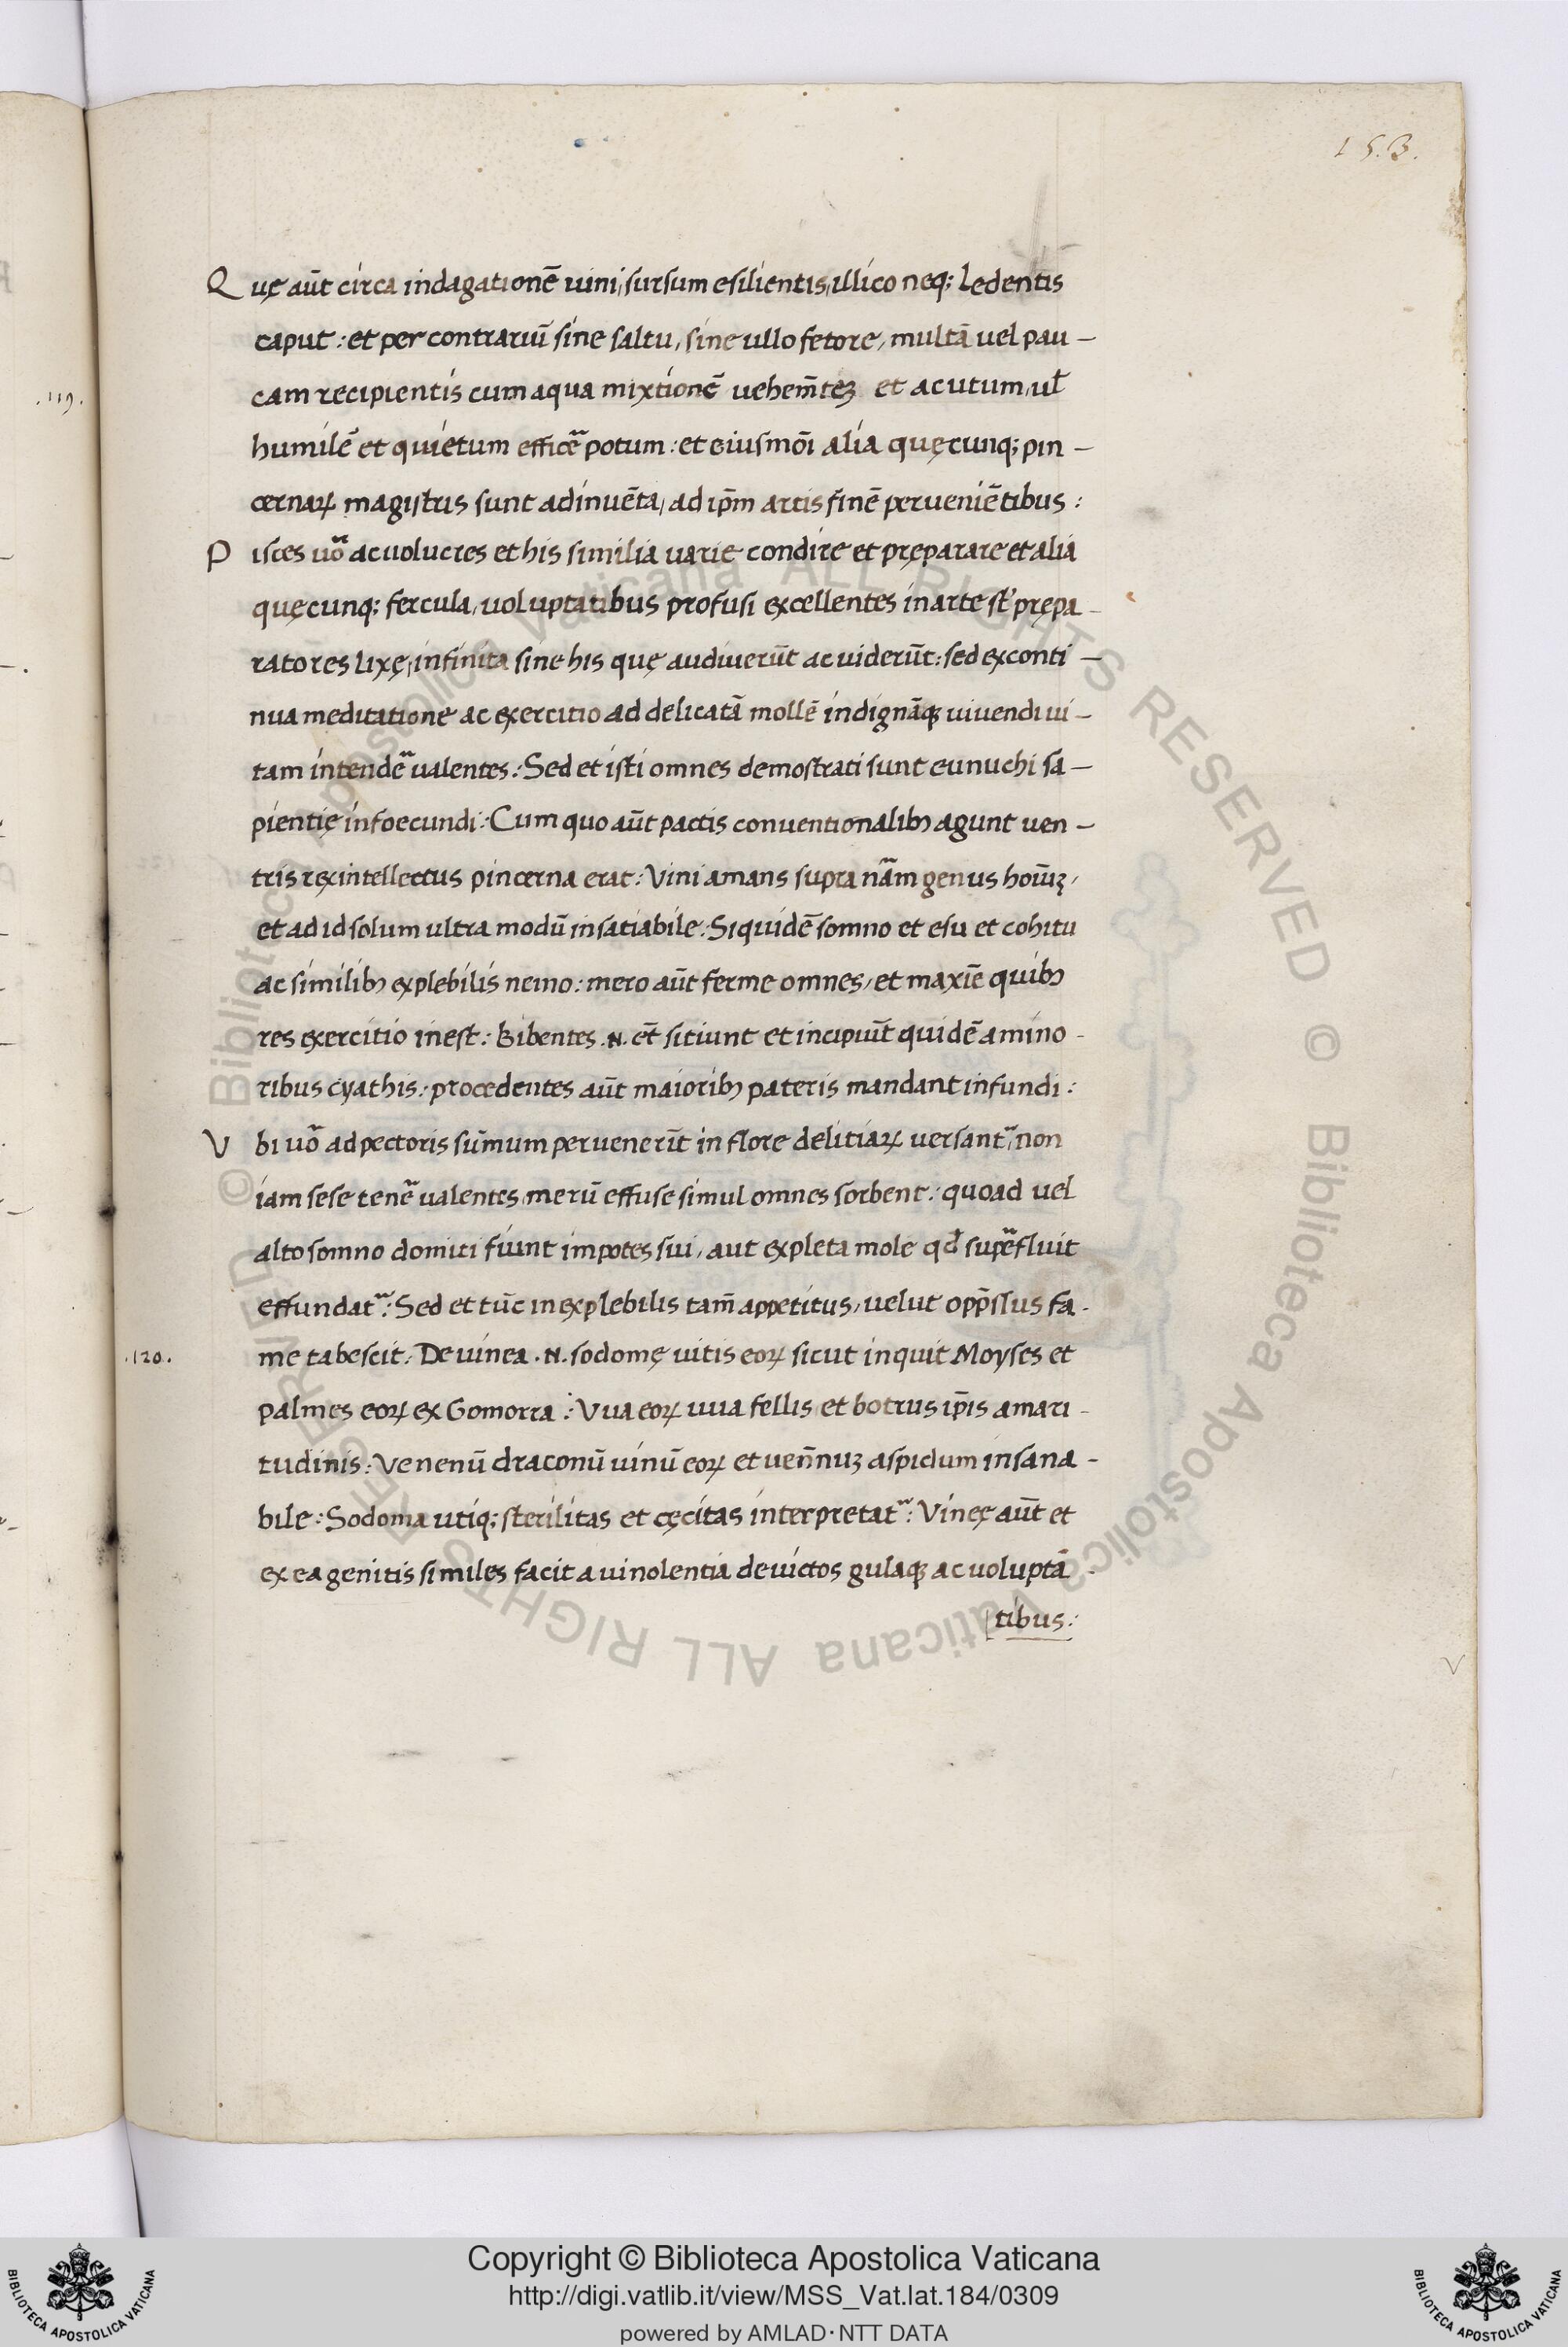 153.
Quę aūt circa indagationē uini, sursum esilientis, illico neq; Ledentis
caput: et per contrariū sine saltu, sine ullo fetore, multā uel pau-
.119.
cam recipientis cum aqua mixtionē uehem̄teʒ et acutum, ul̄
humilē et quietum efficē potum: et eiusmōi alia quęcunq; pin-
cernaꝝ magistris sunt adinuēta, ad ip̄m artis finē perueniētibus:
Pisces uō ac uolucres et his similia varie condire et pręparare et alia
quęcunq; fercula, uoluptatibus profusi excellentes in arte st̄ prępa-
ratores lixę, infinita sine his quę audiuerūt ac uiderūt: sed ex conti-
nua meditatione ac exercitio ad delicatā mollē indignāꝙ uiuendi ui-
tam intendē ualentes: Sed et isti omnes demostrati sunt eunuchi sa-
pientię infoecundi: Cum quo aūt pactis conuentionalibꝫ agunt uen-
tris rex intellectus pincerna erat: Vini amans supra nām genus hoīuʒ,
et ad id solum ultra modū insatiabile: Siquidē somno et esu et cohitu
ac similibꝫ explebilis nemo: mero aūt ferme omnes, et maxīe quibꝫ
res exercitio inest: Bibentes .N. et̄ sitiunt et incipiūt quidē a mino-
ribus cyathis: procedentes aūt maioribꝫ pateris mandant infundi:
Vbi uō ad pectoris sūmum peruenerīt in flore delitiaꝝ uersant᷑, non
iam sese tenē ualentes, merū effuse simul omnes sorbent: quoad uel
alto somno domiti fiunt impotes sui, aut expleta mole qd̄ supēfluit
effundat᷑: Sed et tūc inexplebilis tam̄ appetitus, uelut opp̄ssus fa-
.120.
me tabescit: De uinea .N. sodomę uitis eoꝝ sicut inquit Moyses et
palmes eoꝝ ex Gomorra: Vua eoꝝ uua fellis et botrus ip̄is amari-
tudinis: Venenū draconū uinū eoꝝ et ven̄nuʒ aspidum insana-
bile: Sodoma utiq; sterilitas et cęcitas interpretat᷑: Vineę aūt et
ex ea genitis similes facit a uinolentia deuictos gulaꝙ ac voluptā-
tibus:
© Biblioteca Apostolica Vaticana ALL RIGHTS RESERVED © Biblioteca Apostolica Vaticana ALL RIGHTS RESERVED
Copyright © Biblioteca Apostolica Vaticana
http://digi.vatlib.it/view/MSS_Vat.lat.184/0309
powered by AMLAD·NTT DATA
BIBLIOTECA APOSTOLICA VATICANA
BIBLIOTECA APOSTOLICA VATICANA